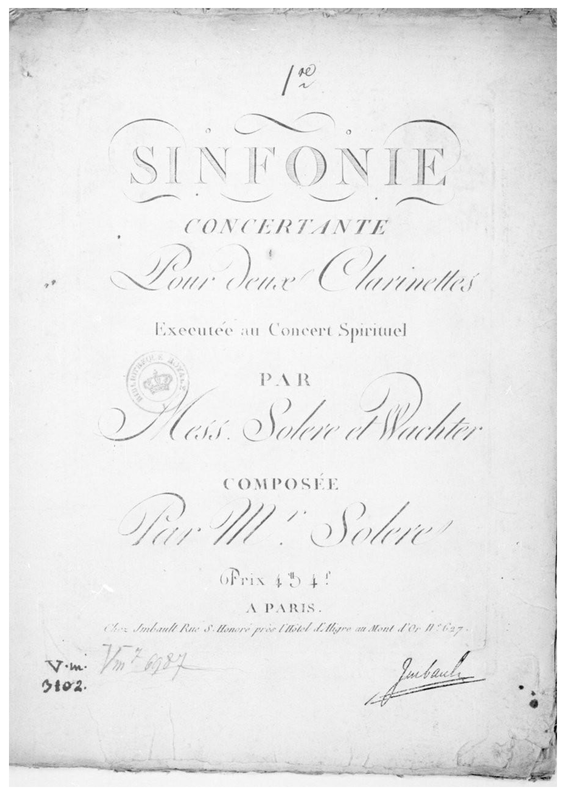 1re
SINFONIE
CONCERTANTE
Pour deux Clarinettes
Executée au Concert Spirituel
BIBLIOTHEQUE ROYALE
PAR
Mess. Solere et Wachter
COMPOSÉE
Par Mr. Solere
Prix 4 tt 4 s
A PARIS.
Chez Imbault Rue St. Honoré près l'Hôtel d'Aligre au Mont d'Or No. 627.
V.m. Vm7 6987
3102. Imbault